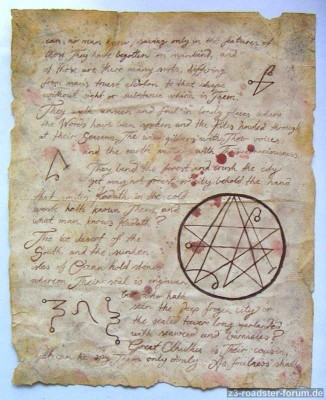 can no man know, saving only in the features of
those They have begotten on mankind, and
of those are there many sorts, differing
from man's truest eidolon to that shape
without sight or substance which is Them.
They walk unseen and foul in lonely places where
the Words have been spoken and the Rites howled through
at their Seasons. The wind gibbers with Their voices
and the earth mutters with Their consciousness.
They bend the forest and crush the city
yet may not forest or city behold the hand
that smites. Kadath in the cold
waste hath known Them, and
what man knows Kadath?
The ice desert of the
South and the sunken
isles of Ocean hold stones
whereon Their seal is engraven
but who hath
seen the deep frozen city or
the sealed tower long garlanded
with seaweed and barnacles?
Great Cthulhu is Their cousin,
yet can he spy Them only dimly. As foulness shall
z3-roadster-forum.de